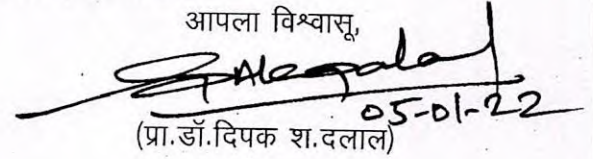 आपला विश्वासू,
05-01-22
(प्रा.डॉ.दिपक श.दलाल)